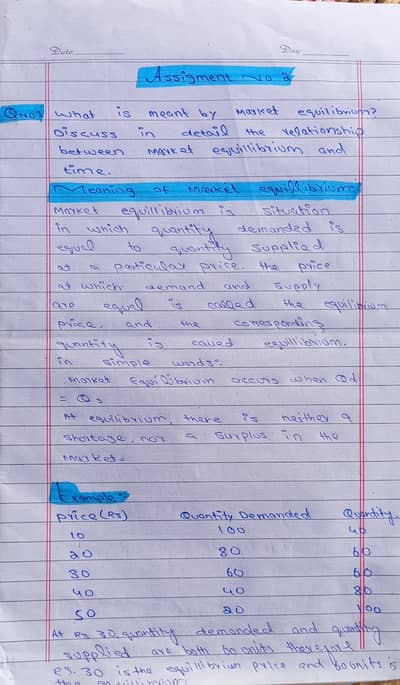 Date
Day
Assigment No 2
Qno1 What is meant by Market equilibrium?
Discuss in detail the relationship
between Market equillibrium and
time.
Meaning of Market equillibrium:
Market equillibrium is situation
in which quantity demanded is
equal to quantity supplied
at a particular price. the price
at which demand and supply
are equal is called the equilibrium
price. and the corresponding
quantity is called equillibrium.
in simple words:
Market Equilibrium occurs when Qd
= Qs
At equilibrium, there is neither a
shortage, nor a surplus in the
Market.
Example:-
price(Rs) Quantity Demanded Quantity
10 100 40
20 80 60
30 60 60
40 40 80
50 20 100
At Rs 30, quantity demanded and quantity
supplied are both 60 units therefore
Rs. 30 is the equilibrium price and 60 units is
the equilibrium